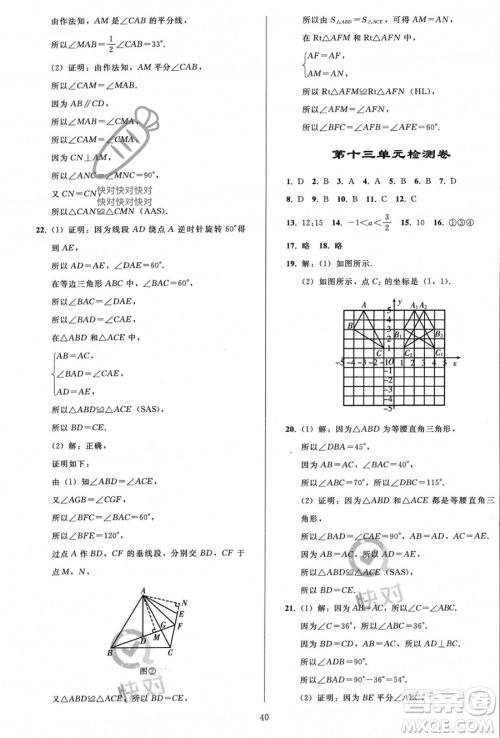 由作法知，AM 是∠CAB 的平分线，
所以∠MAB=1/2∠CAB=33°.
（2）证明：由作法知，AM 平分∠CAB，
所以∠CAM=∠MAB.
因为 AB∥CD，
所以∠MAB=∠CMA.
所以∠CAM=∠CMA.
因为 CN⊥AM，
所以∠ANC=∠MNC=90°.
又 CN=CN，
所以△CAN≌△CMN（AAS）.
22.（1）证明：因为线段 AD 绕点 A 逆时针旋转 60°得
到 AE，
所以 AD=AE，∠DAE=60°.
在等边三角形 ABC 中，
所以∠BAC=∠DAE.
所以∠BAD=∠CAE.
在△ABD 和△ACE 中，
AB=AC，
∠BAD=∠CAE，
AD=AE，
所以△ABD≌△ACE（SAS）.
所以 BD=CE.
（2）解：正确，
证明如下：
由（1）知∠ABD=∠ACE，
又∠AGB=∠CGF，
所以∠BAC=∠BFC=60°.
所以∠BFE=120°.
过点 A 作 BD，CF 的垂线段，分别交 BD，CF 于
点 M，N，
A
N
E
G
F
D
M
B
C
图②
又△ABD≌△ACE（SAS），所以 BD=CE.
所以 S△ABD=S△ACE，可得 AM=AN.
在 Rt△AFM 和 Rt△AFN 中，
AF=AF，
AM=AN，
所以 Rt△AFM≌Rt△AFN（HL）.
所以∠AFM=∠AFN.
所以∠BFC=∠AFB=∠AFE=60°.
第十三单元检测卷
13. 12:15 14. -1<a<3/2 15. 10 16. ①③④
17. 略 18. 略
19. 解：（1）如图所示.
（2）如图所示，点 C₂ 的坐标是（1，1）.
20.（1）解：因为△ABD 为等腰直角三角形，
所以∠DBA=45°.
因为 AB=AC，∠BAC=40°，
所以∠ABC=70°. 所以∠DBC=115°.
（2）证明：因为△ABD 和△ACE 都是等腰直角三
角形，
所以∠BAD=∠CAE=90°，AB=AD，AC=AE.
因为 AB=AC，所以 AD=AE.
所以△ABD≌△ACE.
所以 BD=CE.
21.（1）解：因为 AB=AC，所以∠C=∠ABC.
因为∠C=36°，所以∠ABC=36°.
因为 BD=CD，AB=AC，所以 AD⊥BC.
所以∠ADB=90°.
所以∠BAD=90°-36°=54°.
（2）证明：因为 BE 平分∠ABC，
40